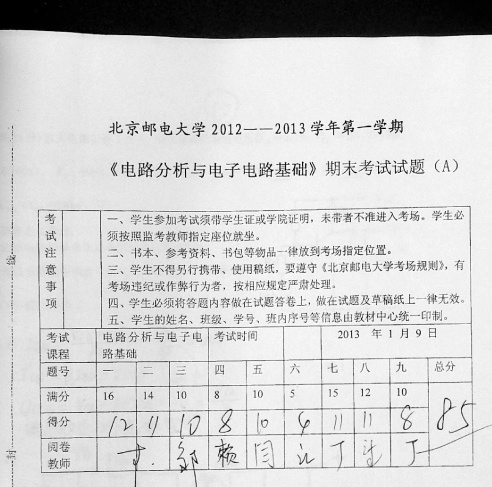 北京邮电大学 2012——2013 学年第一学期
《电路分析与电子电路基础》期末考试试题（A）
考试注意事项
一、学生参加考试须带学生证或学院证明，未带者不准进入考场。学生必
须按照监考教师指定座位就坐。
二、书本、参考资料、书包等物品一律放到考场指定位置。
三、学生不得另行携带、使用稿纸，要遵守《北京邮电大学考场规则》，有
考场违纪或作弊行为者，按相应规定严肃处理。
四、学生必须将答题内容做在试题答卷上，做在试题及草稿纸上一律无效。
五、学生的姓名、班级、学号、班内序号等信息由教材中心统一印制。
考试 电路分析与电子电 考试时间 2013 年 1 月 9 日
课程 路基础
题号 一 二 三 四 五 六 七 八 九 总分
满分 16 14 10 8 10 5 15 12 10
得分 12 11 10 8 10 4 11 11 8 85
阅卷
教师
封